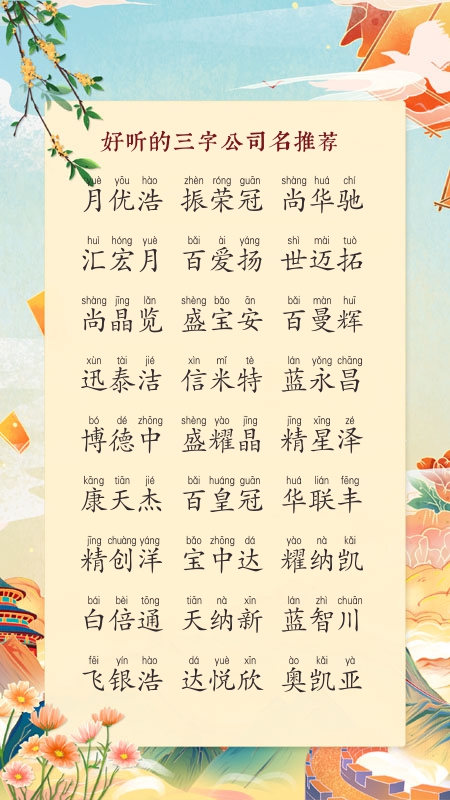 好听的三字公司名推荐
yuè yōu hào zhèn róng guān shàng huá chí
月优浩 振荣冠 尚华驰
huì hóng yuè bǎi ài yáng shì mài tuò
汇宏月 百爱扬 世迈拓
shàng jīng lǎn shèng bǎo ān bǎi màn huī
尚晶览 盛宝安 百曼辉
xùn tài jié xìn mǐ tè lán yǒng chāng
迅泰洁 信米特 蓝永昌
bó dé zhōng shèng yào jīng jīng xīng zé
博德中 盛耀晶 精星泽
kāng tiān jié bǎi huáng guān huá lián fēng
康天杰 百皇冠 华联丰
jīng chuàng yáng bǎo zhōng dá yào nà kǎi
精创洋 宝中达 耀纳凯
bái bèi tōng tiān nà xīn lán zhì chuān
白倍通 天纳新 蓝智川
fēi yín hào dá yuè xīn ào kǎi yà
飞银浩 达悦欣 奥凯亚